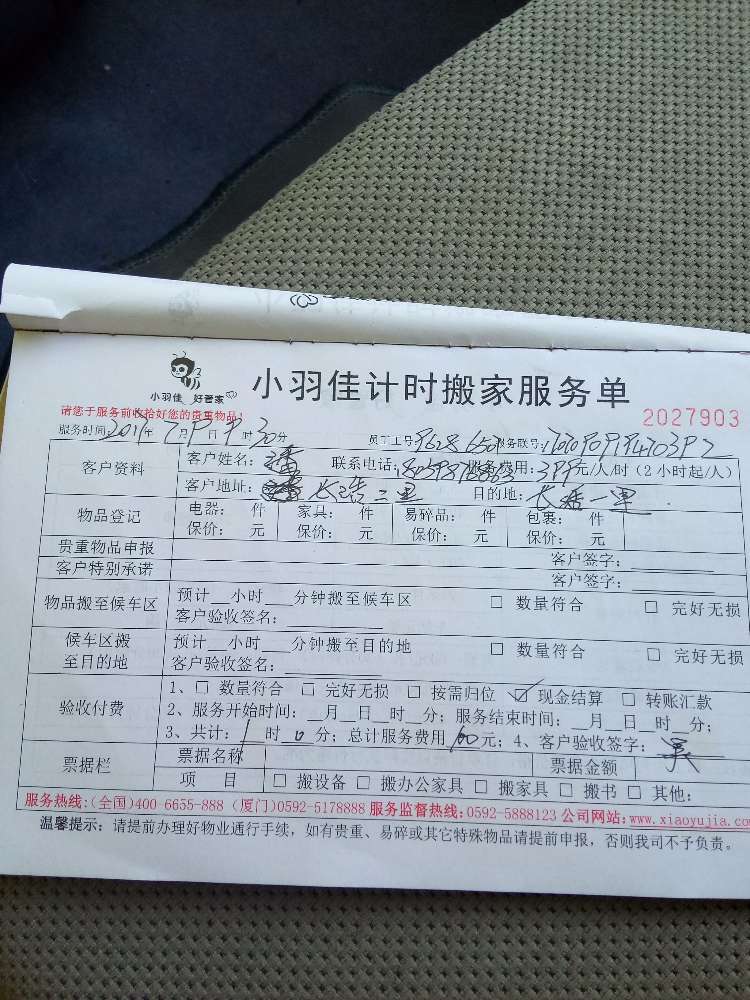 小羽佳 好管家
小羽佳计时搬家服务单
2027903
请您于服务前收拾好您的贵重物品!
服务时间: 年 7月 日 时30分 员工工号: 服务联号:
客户资料 客户姓名: 潘 联系电话: 服务费用: 元/人/时(2小时起/人)
客户地址: 长浩二里 目的地: 长浩一里
物品登记 电器: 件 家具: 件 易碎品: 件 包裹: 件
保价: 元 保价: 元 保价: 元 保价: 元
贵重物品申报 客户签字:
客户特别承诺 客户签字:
物品搬至候车区 预计__小时___分钟搬至候车区 □ 数量符合 □ 完好无损
客户验收签名:
候车区搬至目的地 预计__小时___分钟搬至目的地 □ 数量符合 □ 完好无损
客户验收签名:
验收付费 1、□ 数量符合 □ 完好无损 □ 按需归位 ☑ 现金结算 □ 转账汇款
2、服务开始时间:__月__日__时__分; 服务结束时间:__月__日__时__分;
3、共计: 1时0分; 总计服务费用 元; 4、客户验收签字: 吴
票据栏 票据名称 票据金额
项 目 □ 搬设备 □ 搬办公家具 □ 搬家具 □ 搬书 □ 其他:
服务热线:(全国)400-6655-888 (厦门)0592-5178888 服务监督热线:0592-5888123 公司网站:www.xiaoyujia.com
温馨提示: 请提前办理好物业通行手续, 如有贵重、易碎或其它特殊物品请提前申报, 否则我司不予负责。